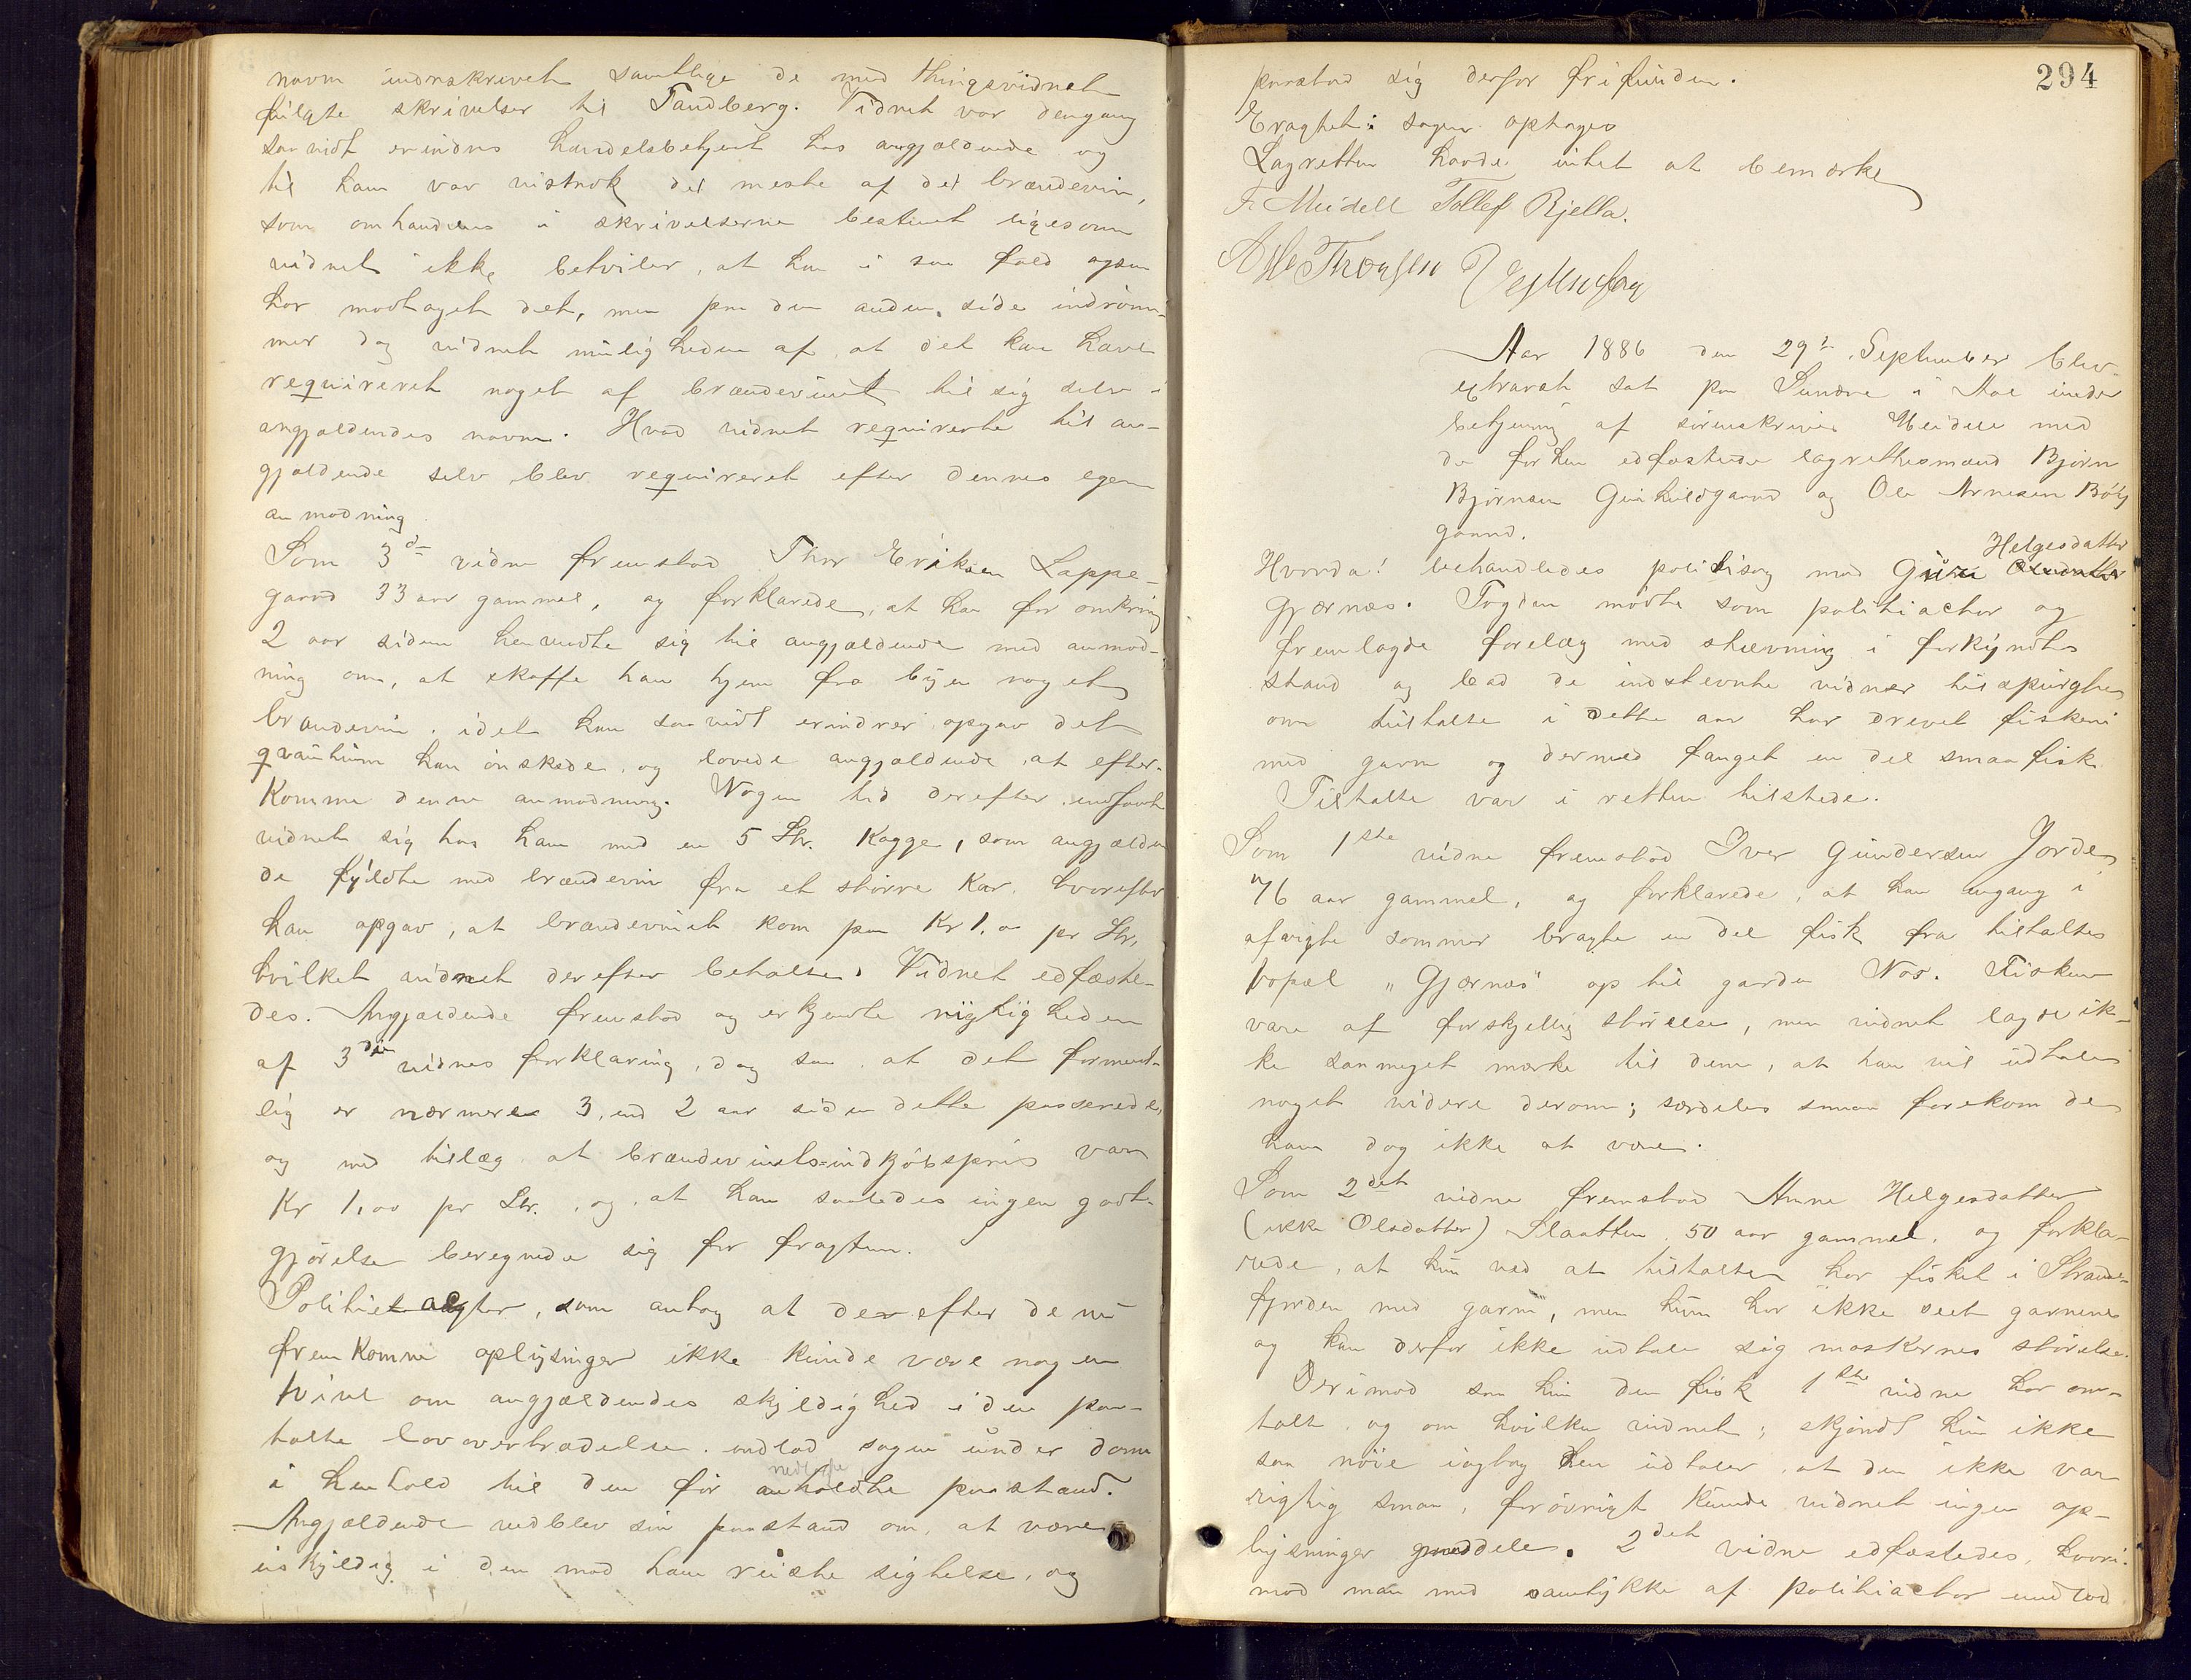 navn underskrevet samtlige de med thingsvidnet
fulgte skrivelser til Tandberg. Vidnet var dengang
saavidt erindres handelsbetjent hos angjældende og
til ham var vistnok det meste af det brændevin,
som omhandles i skrivelserne bestemt ligesom
vidnet ikke betviler, at han i saa fald ogsaa
har modtaget det, men paa den anden side indrøm-
mer dog vidnet muligheden af at det kan have
requireret noget af brændevinet til sig selv i
angjældendes navn. Hvad vidnet requirerte til an-
gjældende selv blev requireret efter dennes egen
anmodning
Som 3de vidne fremstod Thor Eriksen Lappe-
gaard 33 aar gammel, og forklarede, at han for omkring
2 aar siden henvendte sig til angjældende med anmod-
ning om, at skaffe ham hjem fra byen noget
brændevin, idet han saavidt erindrer opgav det
qvantum han ønskede, og lovede angjældende at efter-
komme denne anmodning. Nogen tid derefter indfandt
vidnet sig hos ham med en 5 Ltr. Kagge, som angjælden
de fyldte med brændevin fra et større Kar, hvorefter
han opgav, at brændevinet kom paa Kr 1.00 pr Ltr,
hvilket vidnet derefter betalte. Vidnet edfæste-
des. Angjældende fremstod og erkjendte rigtigheden
af 3die vidnes forklaring, dog saa at det forment-
lig er nærmere 3 end 2 aar siden dette passerede,
og med tillæg at brændevinets indkjøbspris var
Kr 1,00 pr Ltr. og at han saaledes ingen godt-
gjørelse beregnede sig for fragten.
Politiactor, som antog at der efter de nu
fremkomne oplysninger ikke kunde være nogen
tvivl om angjældendes skyldighed i den paa-
talte lovovertrædelse, indlod sagen under dom
i henhold til den før nedlagte paastand.
Angjældende vedblev sin paastand om at være
uskyldig i den mod ham reiste sigtelse, og
294
paastod sig derfor frifunden.
Eragtet: sagen optages
Lagretten havde intet at bemærke
F. Meidell Tollef Rjella.
Aar 1886 den 29de September blev
extraret sat paa Sundre i Aal under
betjening af sorenskriver Meidell med
de forhen edfæstede lagrettesmænd Bjørn
Bjørnsen Gunhildgaard og Ole Arnesen Bøy
gaard.
Hvorda! behandledes politisag mod Guri Helgesdatter
Gjærnæs. Togden mødte som politiactor og
fremlagde forelæg med stævning i forkyndt
stand og bad de indstevnte vidner tilspurgte
om tiltalte i dette aar har drevet fiskeri
med garn og dermed fanget en del smaa fisk
Tiltalte var i retten tilstede.
Som 1ste vidne fremstod Iver Gundersen Jorde
76 aar gammel, og forklarede, at han engang i
afvigte sommer bragte en del fisk fra tiltaltes
bopæl "Gjærnæs" op til garden Nos. Fisken
vare af forskjellig størelse, men vidnet lagde ik-
ke saa meget mærke til dem, at han vil udtale
noget videre derom; særdeles smaa forekom de
ham dog ikke at være.
Som 2det vidne fremstod Anne Helgesdatter
(ikke Olsdatter) Slaatten 50 aar gammel, og forkla-
rede, at hun ved at tiltalte har fisket i Strande-
fjorden med garn, men hun har ikke seet garnene
og kan derfor ikke udtale sig maskernes størelse.
Derimod saa hun den fisk 1ste vidne har om-
talt, og om hvilke vidnet, skjøndt hun ikke
saa nøie iagtog den udtaler, at den ikke var
rigtig smaa, forøvrigt kunde vidnet ingen op-
lysninger meddele. 2det vidne edfæstedes, hvori-
mod man med samtykke af politiactor undlod